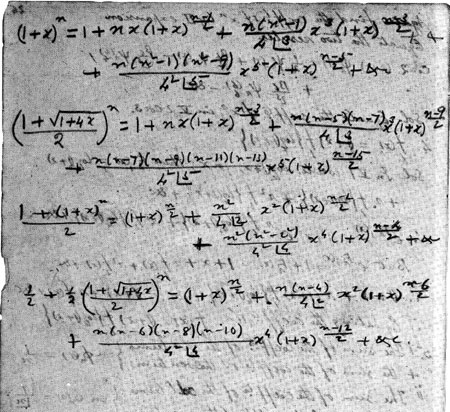 (1+x)^n = 1 + nx(1+x)^{(n-1)/2} + n(n²-1)/(4⌊3) x³(1+x)^{(n-3)/2} &
+ n(n²-1)(n²-9)/(4²⌊5) x⁵(1+x)^{(n-5)/2} + &c
((1+√(1+4x))/2)^n = 1 + nx(1+x)^{(n-3)/2} + n(n-5)(n-7)/(4⌊3) x³(1+x)^{(n-9)/2}
+ n(n-7)(n-9)(n-11)(n-13)/(4²⌊5) x⁵(1+x)^{(n-15)/2}
(1+(1+x)^n)/2 = (1+x)^{n/2} + n²/(4⌊2) x²(1+x)^{(n-2)/2}
+ n²(n²-2²)/(4²⌊4) x⁴(1+x)^{(n-4)/2} + &c
1/2 + 1/2((1+√(1+4x))/2)^n = (1+x)^{n/2} + n(n-4)/(4⌊2) x²(1+x)^{(n-6)/2}
+ n(n-6)(n-8)(n-10)/(4²⌊4) x⁴(1+x)^{(n-12)/2} + &c.